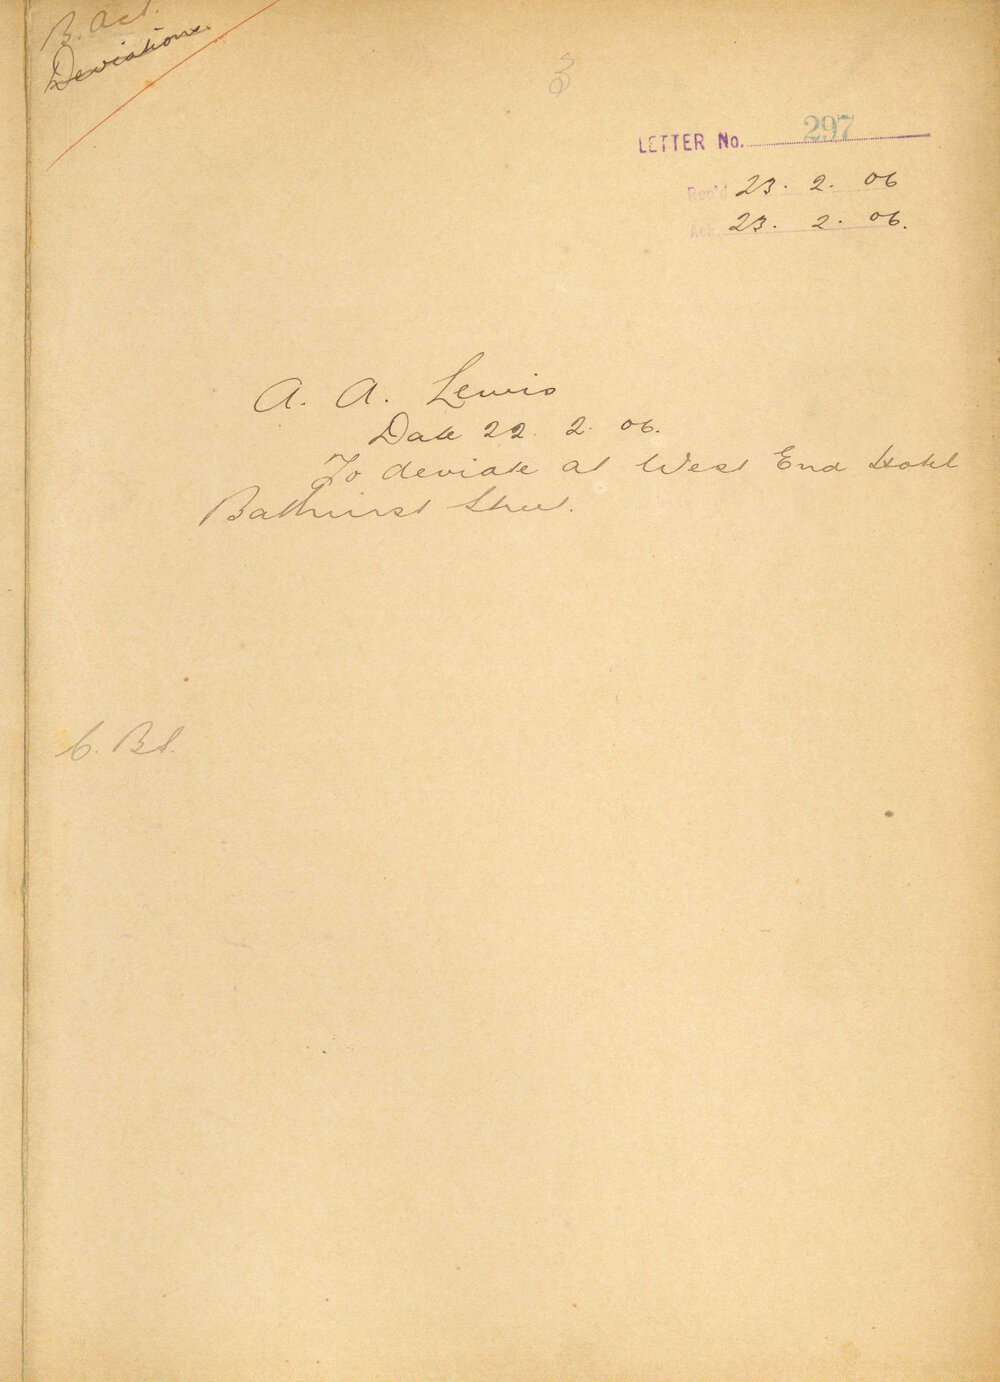 B. Act.
Deviations.
3
LETTER No. 297
Rec'd 23. 2. 06
Ack 23. 2. 06.
A. A. Lewis
Date 22. 2. 06.
To deviate at West End Hotel
Bathurst Street.
C. B.S.